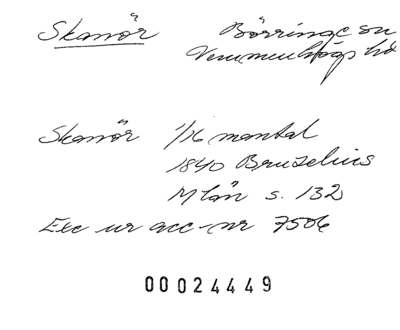 Skanör Börringe sn
Vemmenhögs hd
Skanör 1/16 mantal
1840 Bruzelius
M län s. 132
Exc ur acc-nr 7506
00024449